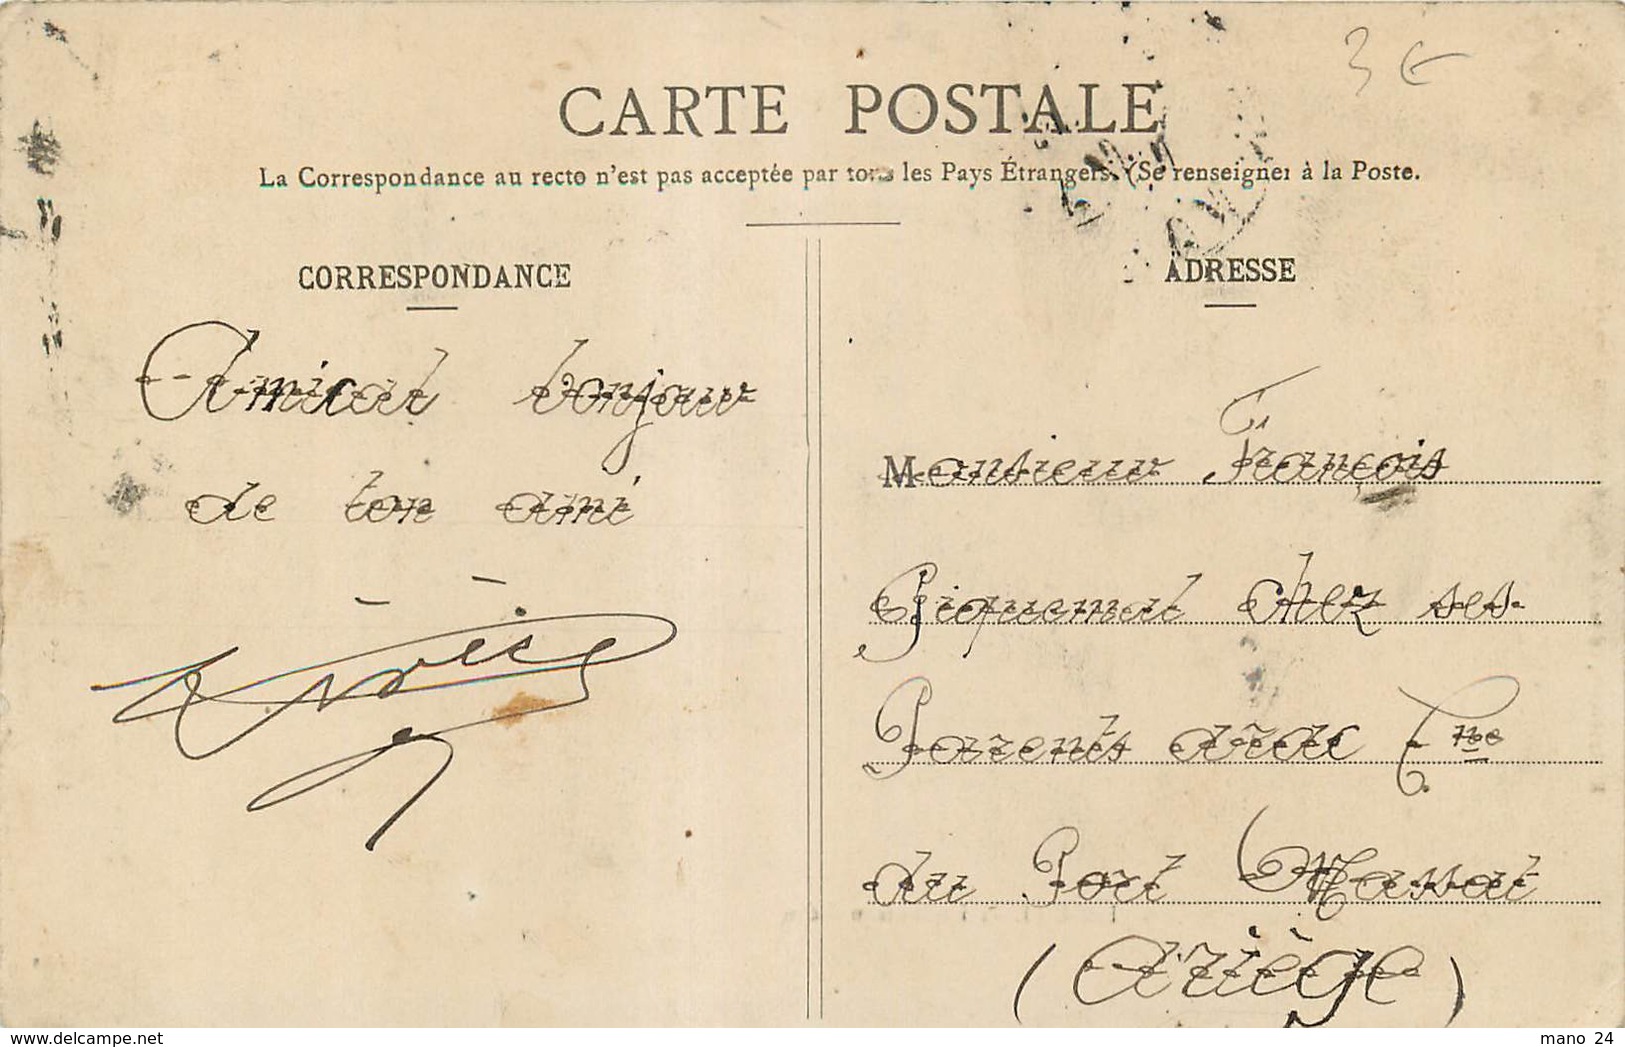 3 €
CARTE POSTALE
La Correspondance au recto n'est pas acceptée par tous les Pays Étrangers. (Se renseigner à la Poste.
CORRESPONDANCE
Amical bonjour
de ton ami
ADRESSE
Monsieur François
Piquemal chez ses
Parents arac Cne
du Port Massat
(Ariège)
www.delcampe.net
mano 24